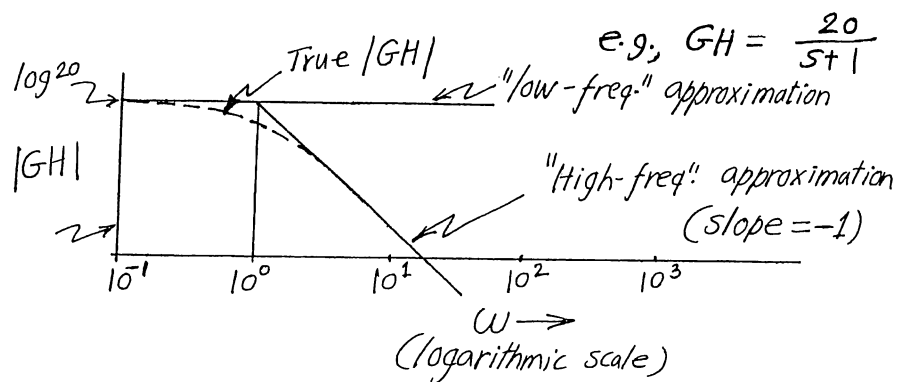 e.g., GH = 20/(s+1)
log20
True |GH|
"low-freq." approximation
|GH|
"High-freq". approximation
(slope = -1)
10^-1 10^0 10^1 10^2 10^3
ω →
(logarithmic scale)